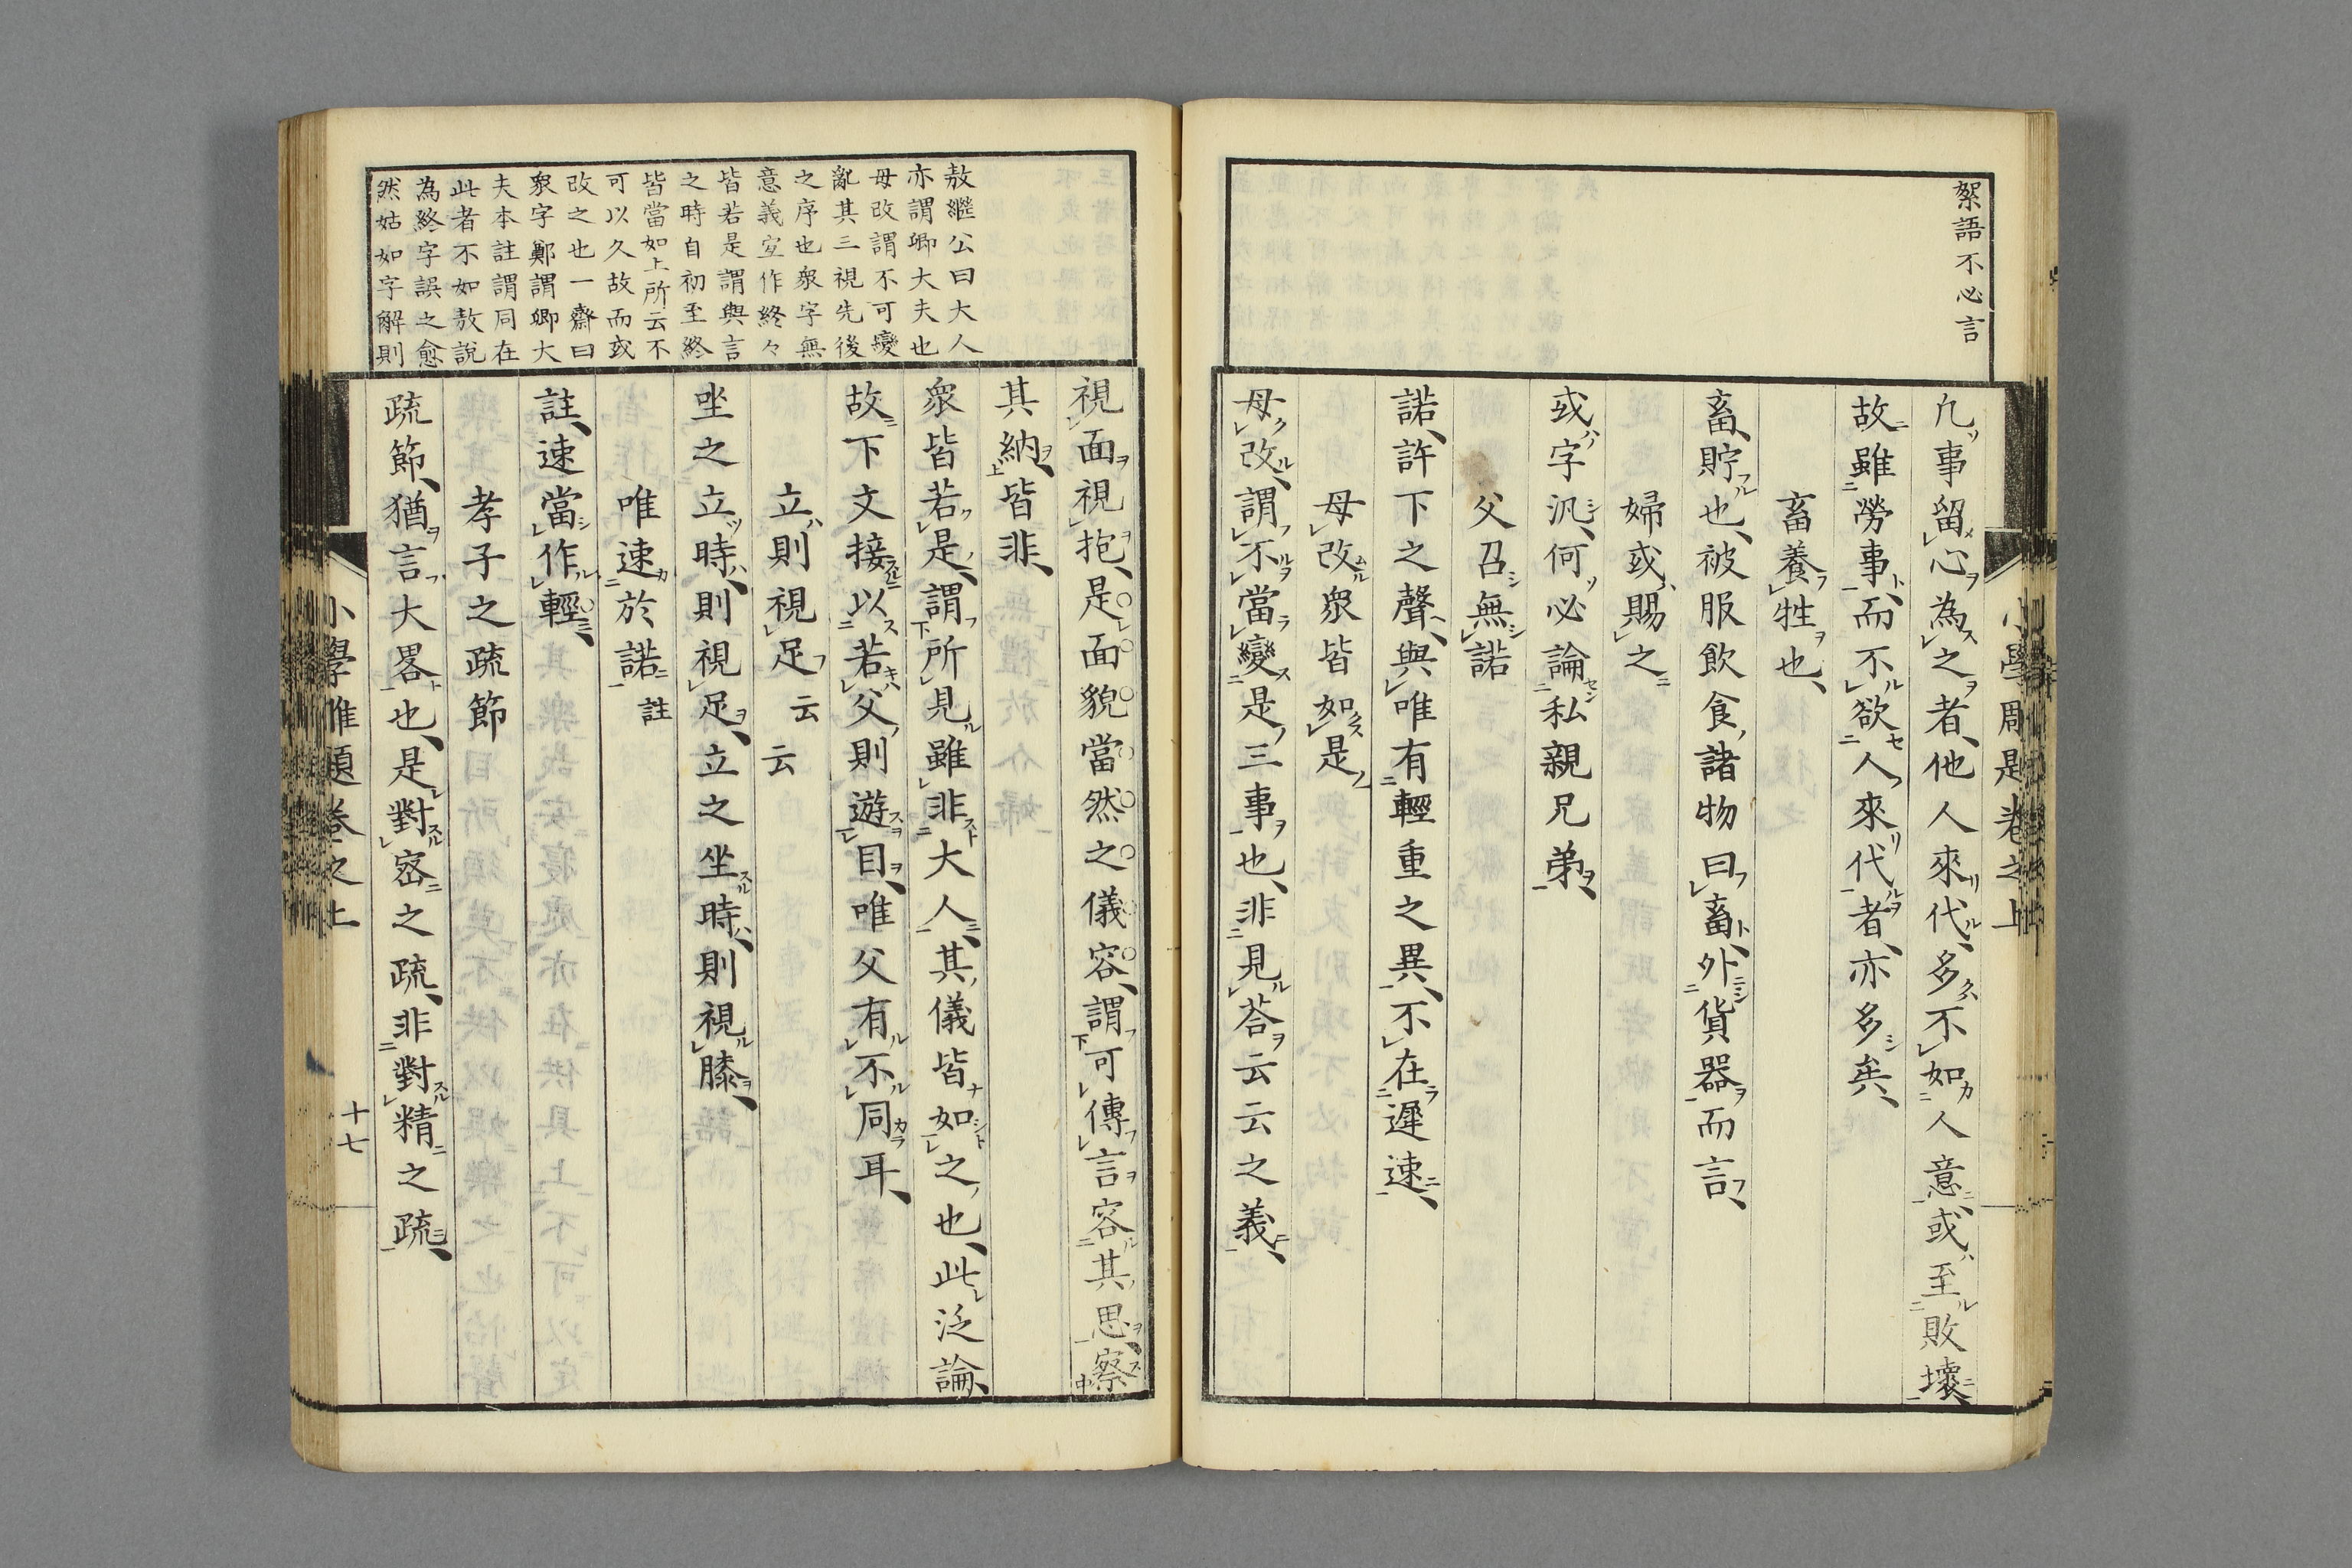 絮語不必言
凢事留心為之者他人來代多不如人意或至敗壞
故雖勞事而不欲人來代者亦多矣
畜養牲也
畜貯也被服飲食諸物曰畜外貨器而言
婦或賜之
或字汎何必論私親兄弟
父召無諾
諾許下之聲與唯有輕重之異不在遲速
母改眾皆如是
母改謂不當變是三事也非見荅云云之義
敖繼公曰大人
亦謂卿大夫也
母改謂不可變
亂其三視先後
之序也眾字無
意義宐作終々
皆若是謂與言
之時自初至終
皆當如上所云不
可以久故而或
改之也一齋曰
眾字鄭謂卿大
夫本註謂同在
此者不如敖說
為終字誤之愈
然姑如字解則
視面視抱是面貌當然之儀容謂可傳言容其思察
其納皆非
眾皆若是謂所見雖非大人其儀皆如之也此泛論
故下文接以若父則遊目唯父有不同耳
立則視足云云
坐之立時則視足立之坐時則視膝
唯速於諾註
註速當作輕
孝子之疏節
疏節猶言大畧也是對宻之疏非對精之疏
十七